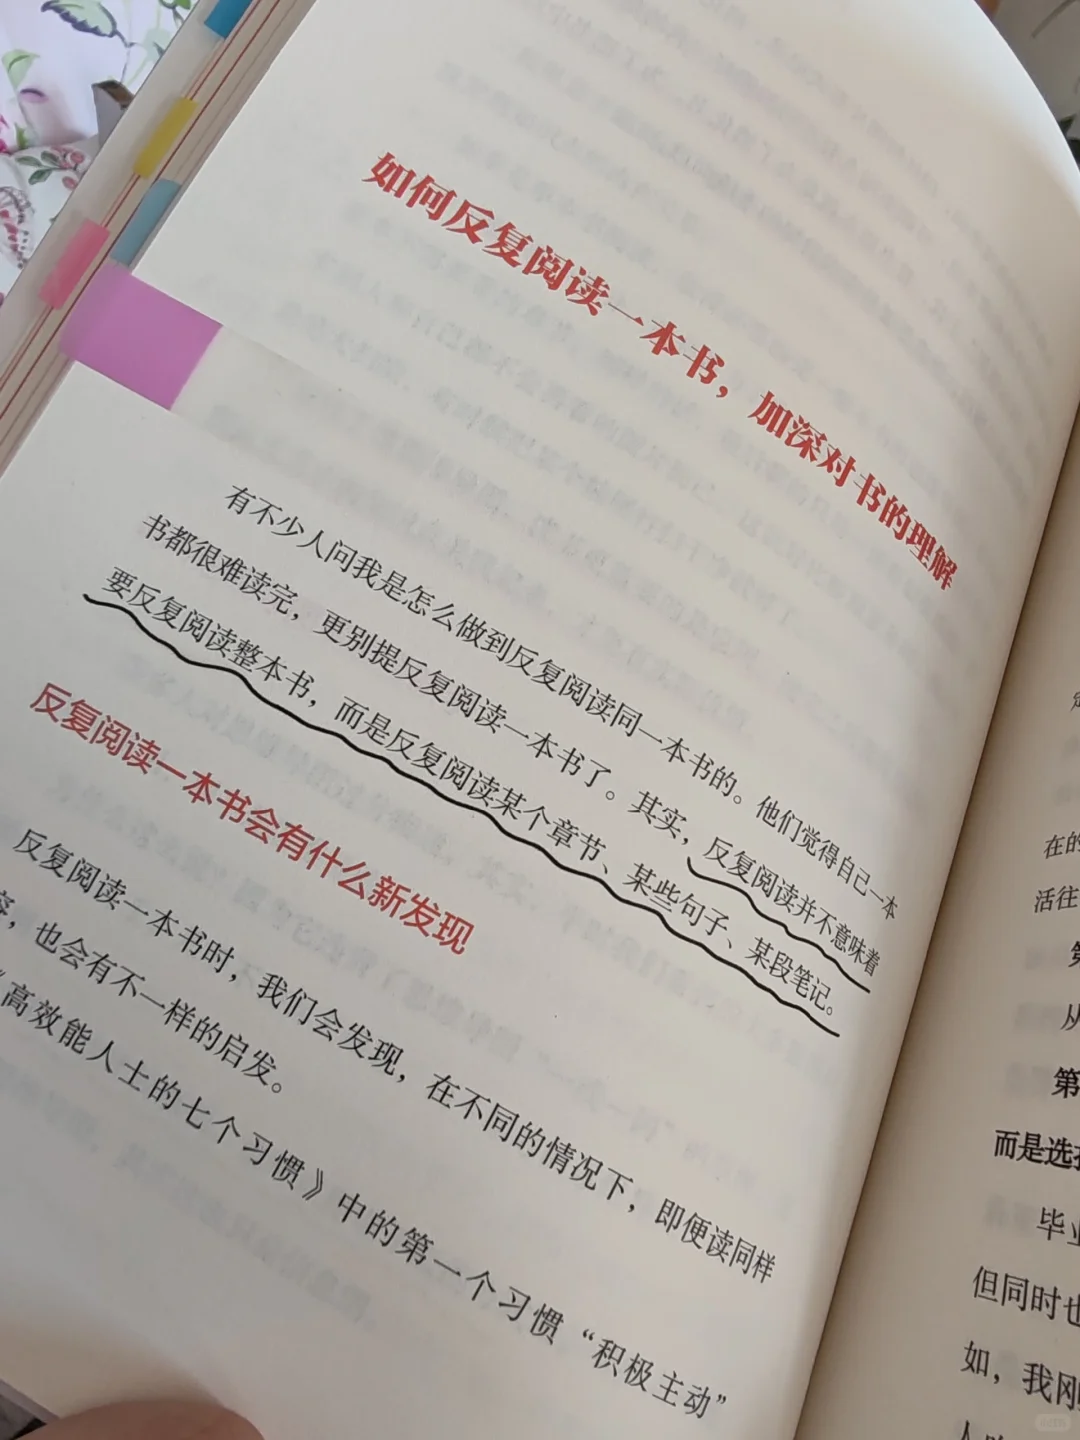 如何反复阅读一本书，加深对书的理解
有不少人问我是怎么做到反复阅读同一本书的。他们觉得自己一本
书都很难读完，更别提反复阅读一本书了。其实，反复阅读并不意味着
要反复阅读整本书，而是反复阅读某个章节、某些句子、某段笔记。
反复阅读一本书会有什么新发现
反复阅读一本书时，我们会发现，在不同的情况下，即便读同样
，也会有不一样的启发。
《高效能人士的七个习惯》中的第一个习惯“积极主动”
在的
活往
从
第
而是选
毕业
但同时也
如，我刚